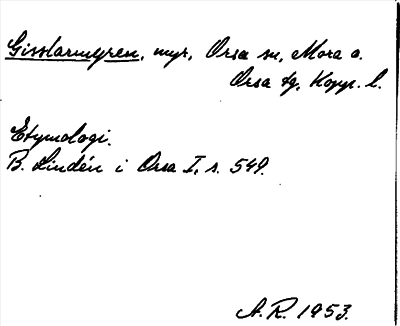 Gisslarmyren, myr, Orsa sn, Mora o.
Orsa tg, Kopp. l.
Etymologi.
B. Lindén i Orsa I, s. 549.
A.R. 1953.